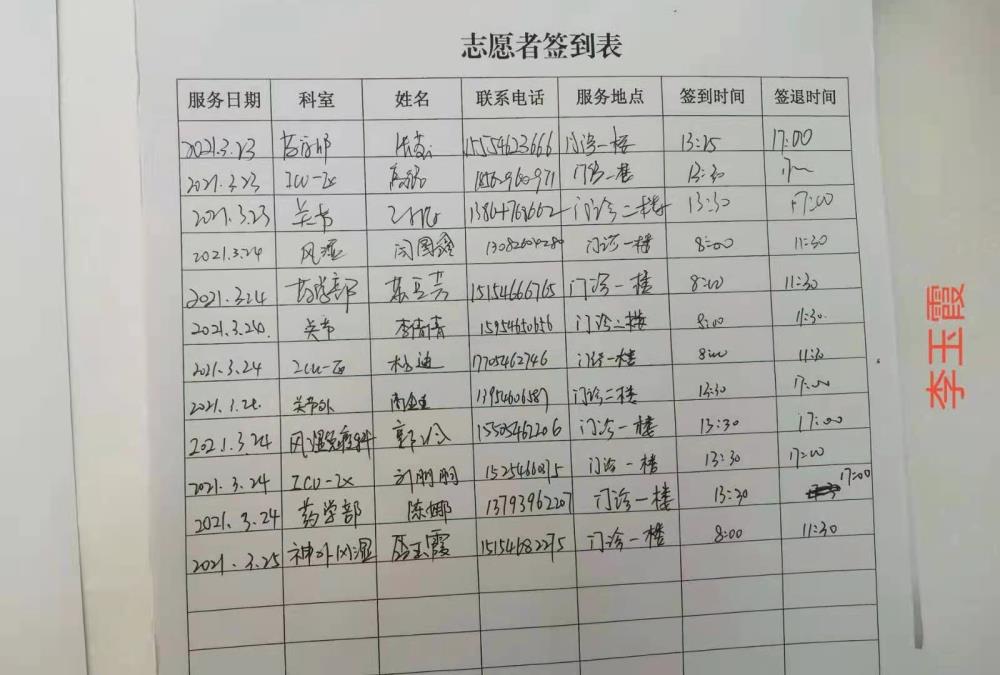 志愿者签到表
服务日期 科室 姓名 联系电话 服务地点 签到时间 签退时间
2021.3.23 15554623666 门诊一楼 13:25 17:00
2021.3.23 门诊一楼 13:30
2021.3.23 关节 门诊二楼 13:30 17:00
2021.3.24 风湿 闫国鑫 13082604280 门诊一楼 8:00 11:30
2021.3.24 药学部 15154666765 门诊一楼 8:00 11:30
2021.3.24. 关节 李倩倩 15954650656 门诊二楼 8:00 11:30.
2021.3.24 杨迪 17705462746 门诊一楼 8:00 11:30
关节外 13954606587 门诊二楼 13:30 17:00
2021.3.24 风湿免疫科 15505462206 门诊一楼 13:30 17:00
2021.3.24 刘朋朋 门诊一楼 13:30 17:00
2021.3.24 药学部 陈娜 13793962207 门诊一楼 13:30 17:00
2021.3.25 神外风湿 玉霞 15154682275 门诊一楼 8:00 11:30
李玉霞